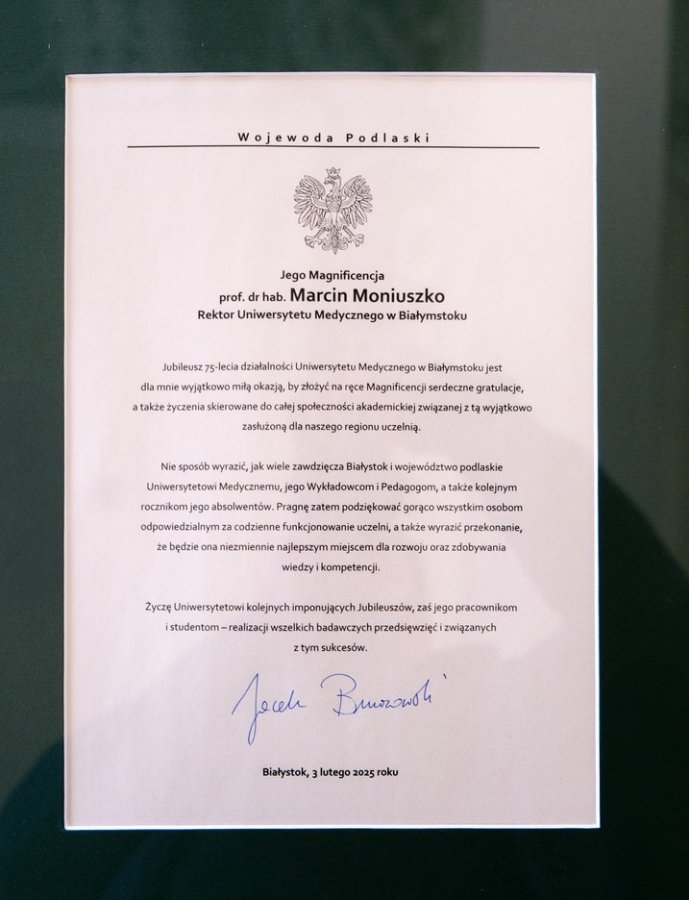 Wojewoda Podlaski
Jego Magnificencja
prof. dr hab. Marcin Moniuszko
Rektor Uniwersytetu Medycznego w Białymstoku
Jubileusz 75-lecia działalności Uniwersytetu Medycznego w Białymstoku jest
dla mnie wyjątkowo miłą okazją, by złożyć na ręce Magnificencji serdeczne gratulacje,
a także życzenia skierowane do całej społeczności akademickiej związanej z tą wyjątkowo
zasłużoną dla naszego regionu uczelnią.
Nie sposób wyrazić, jak wiele zawdzięcza Białystok i województwo podlaskie
Uniwersytetowi Medycznemu, jego Wykładowcom i Pedagogom, a także kolejnym
rocznikom jego absolwentów. Pragnę zatem podziękować gorąco wszystkim osobom
odpowiedzialnym za codzienne funkcjonowanie uczelni, a także wyrazić przekonanie,
że będzie ona niezmiennie najlepszym miejscem dla rozwoju oraz zdobywania
wiedzy i kompetencji.
Życzę Uniwersytetowi kolejnych imponujących Jubileuszów, zaś jego pracownikom
i studentom – realizacji wszelkich badawczych przedsięwzięć i związanych
z tym sukcesów.
Jacek Brzozowski
Białystok, 3 lutego 2025 roku